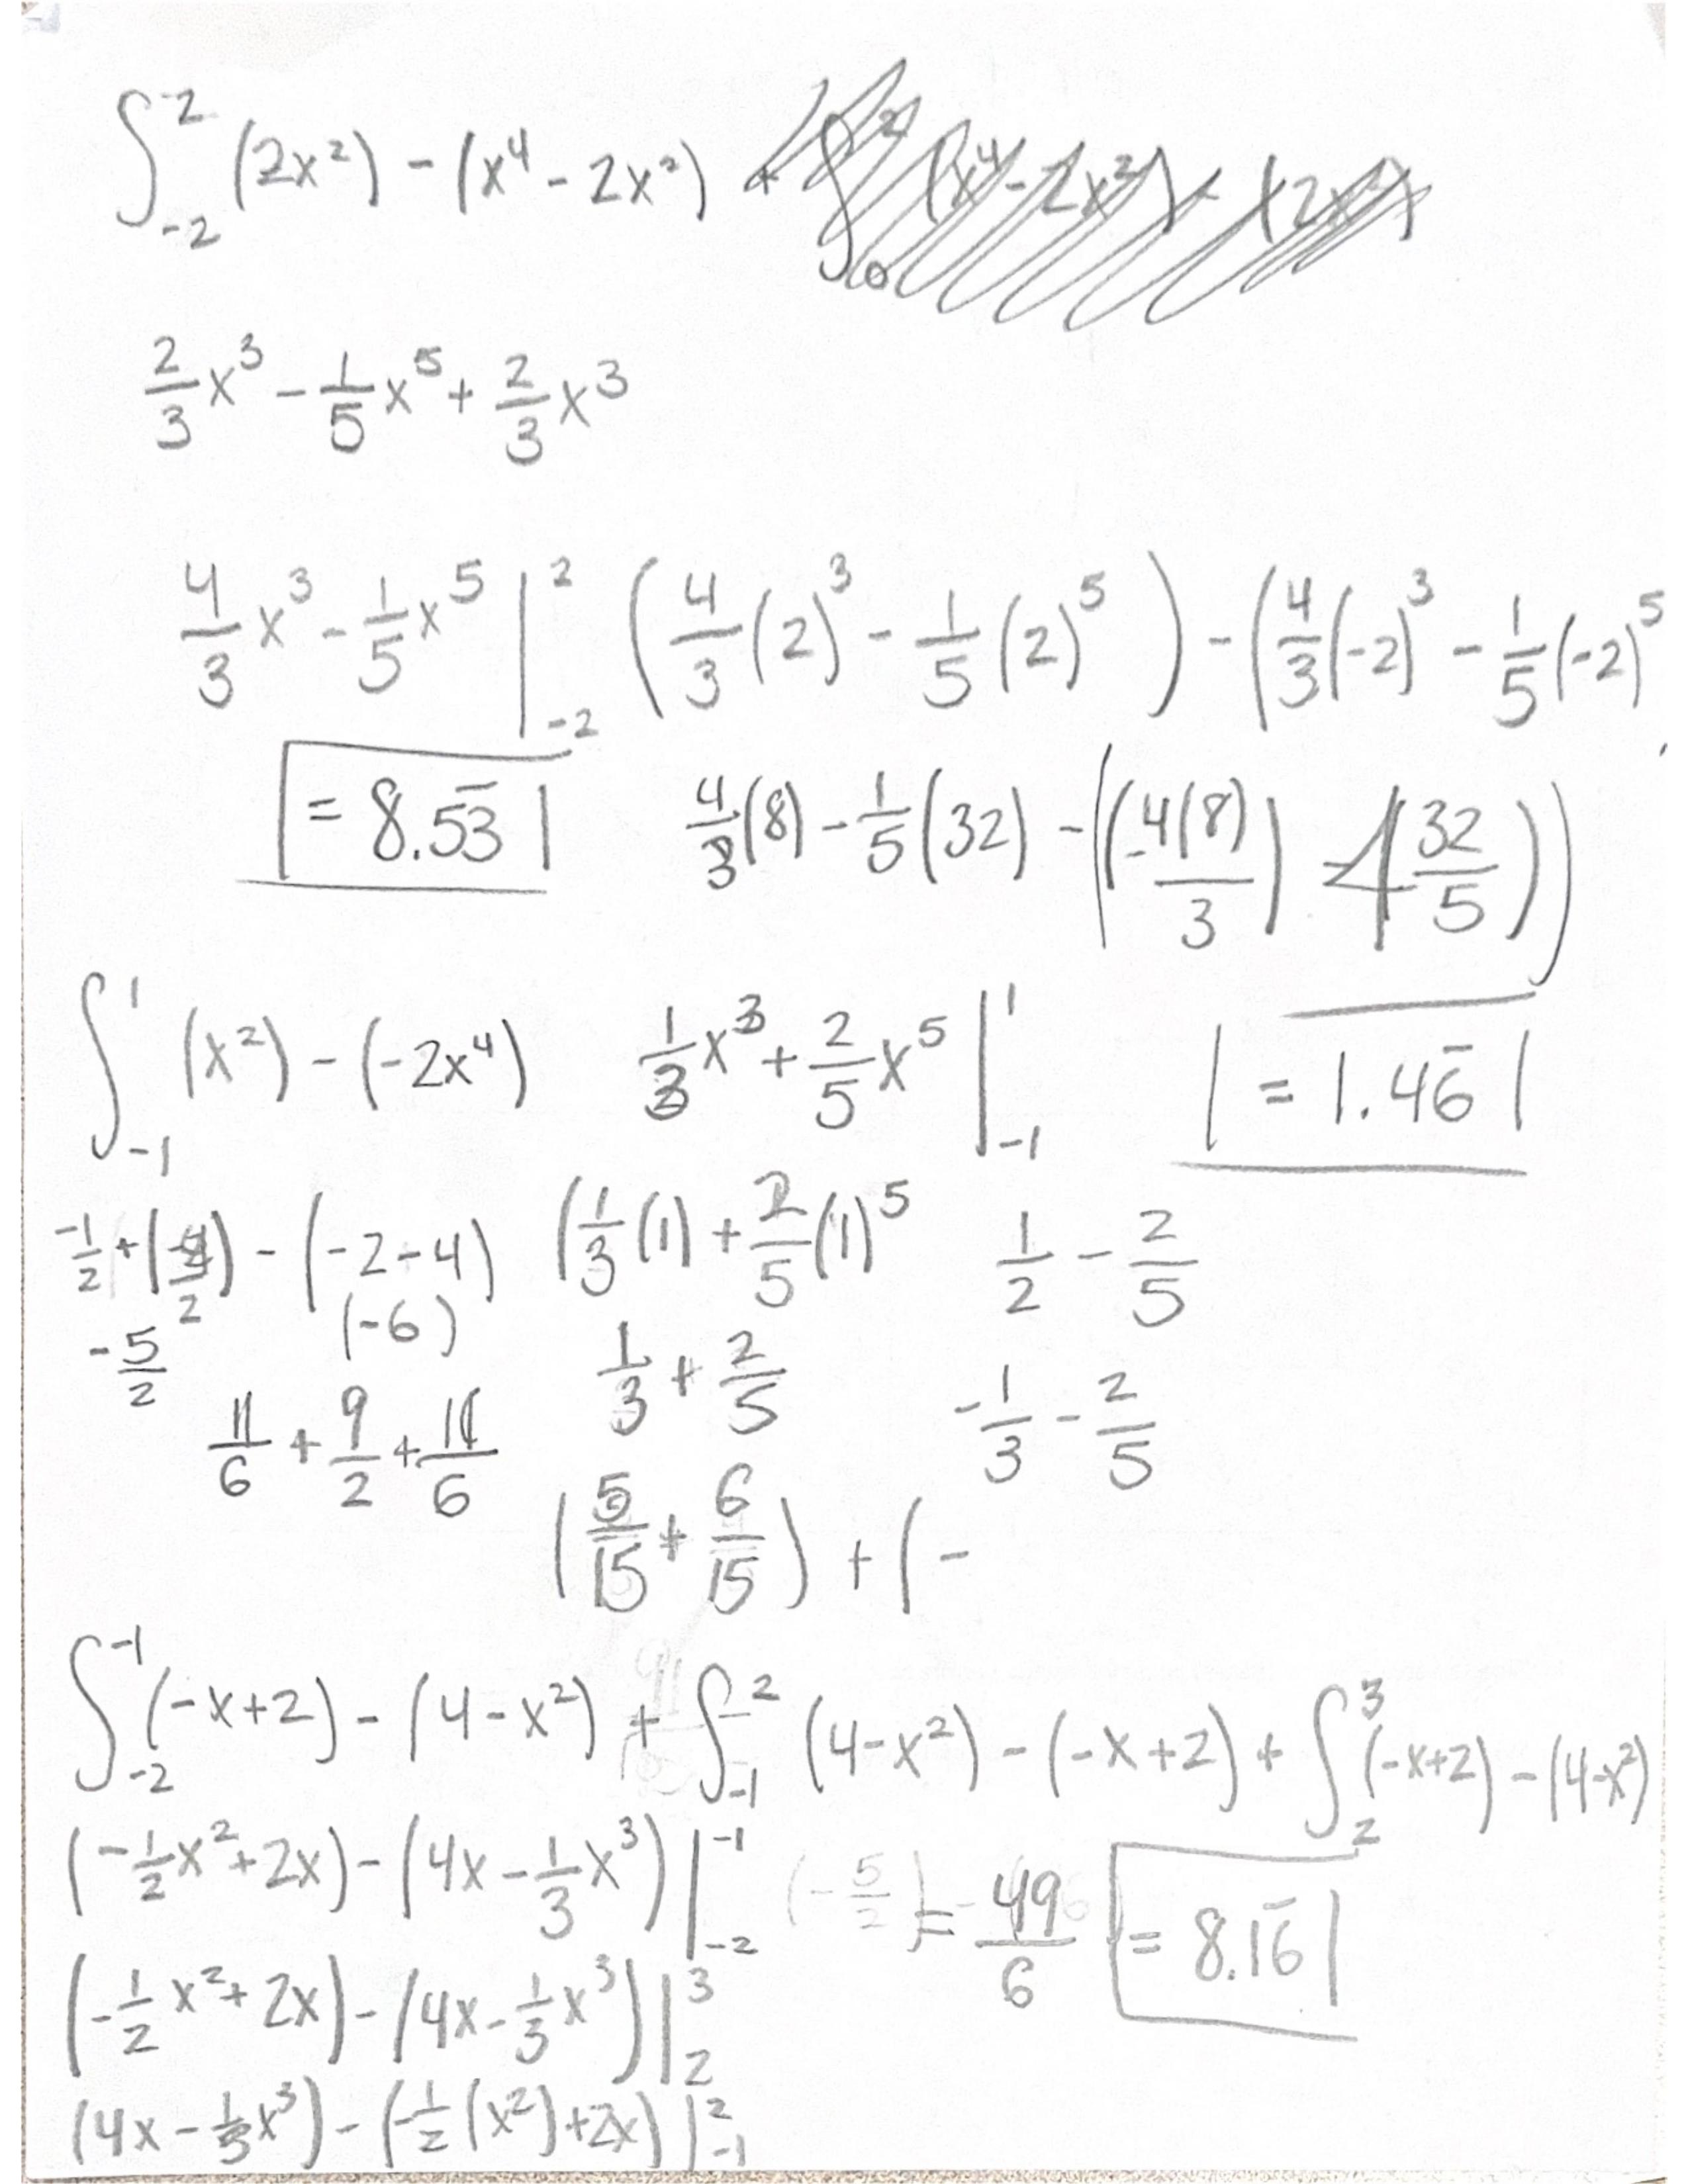 ∫₋₂² (2x²) - (x⁴ - 2x²) + ∫₀² (x⁴ - 2x²) - (2x²)
2/3 x³ - 1/5 x⁵ + 2/3 x³
4/3 x³ - 1/5 x⁵ |₋₂² (4/3 (2)³ - 1/5 (2)⁵) - (4/3 (-2)³ - 1/5 (-2)⁵
= 8.53̅ 4/3 (8) - 1/5 (32) - ((-4(8)/3) - (32/5))
∫₋₁¹ (x²) - (-2x⁴) 1/3 x³ + 2/5 x⁵ |₋₁¹ = 1.46̅
-1/2 + (-4/2) - (-2-4) (1/3 (1) + 2/5 (1)⁵ 1/2 - 2/5
-5/2 (-6) 1/3 + 2/5 -1/3 - 2/5
11/6 + 9/2 + 11/6
(5/15 + 6/15) + (-
∫₋₂⁻¹ (-x+2) - (4-x²) + ∫₋₁² (4-x²) - (-x+2) + ∫₂³ (-x+2) - (4-x²)
(-1/2 x² + 2x) - (4x - 1/3 x³) |₋₂⁻¹ (-5/2) = 49/6 = 8.16̅
(-1/2 x² + 2x) - (4x - 1/3 x³) |₂³
(4x - 1/3 x³) - (-1/2 (x²) + 2x) |₋₁²